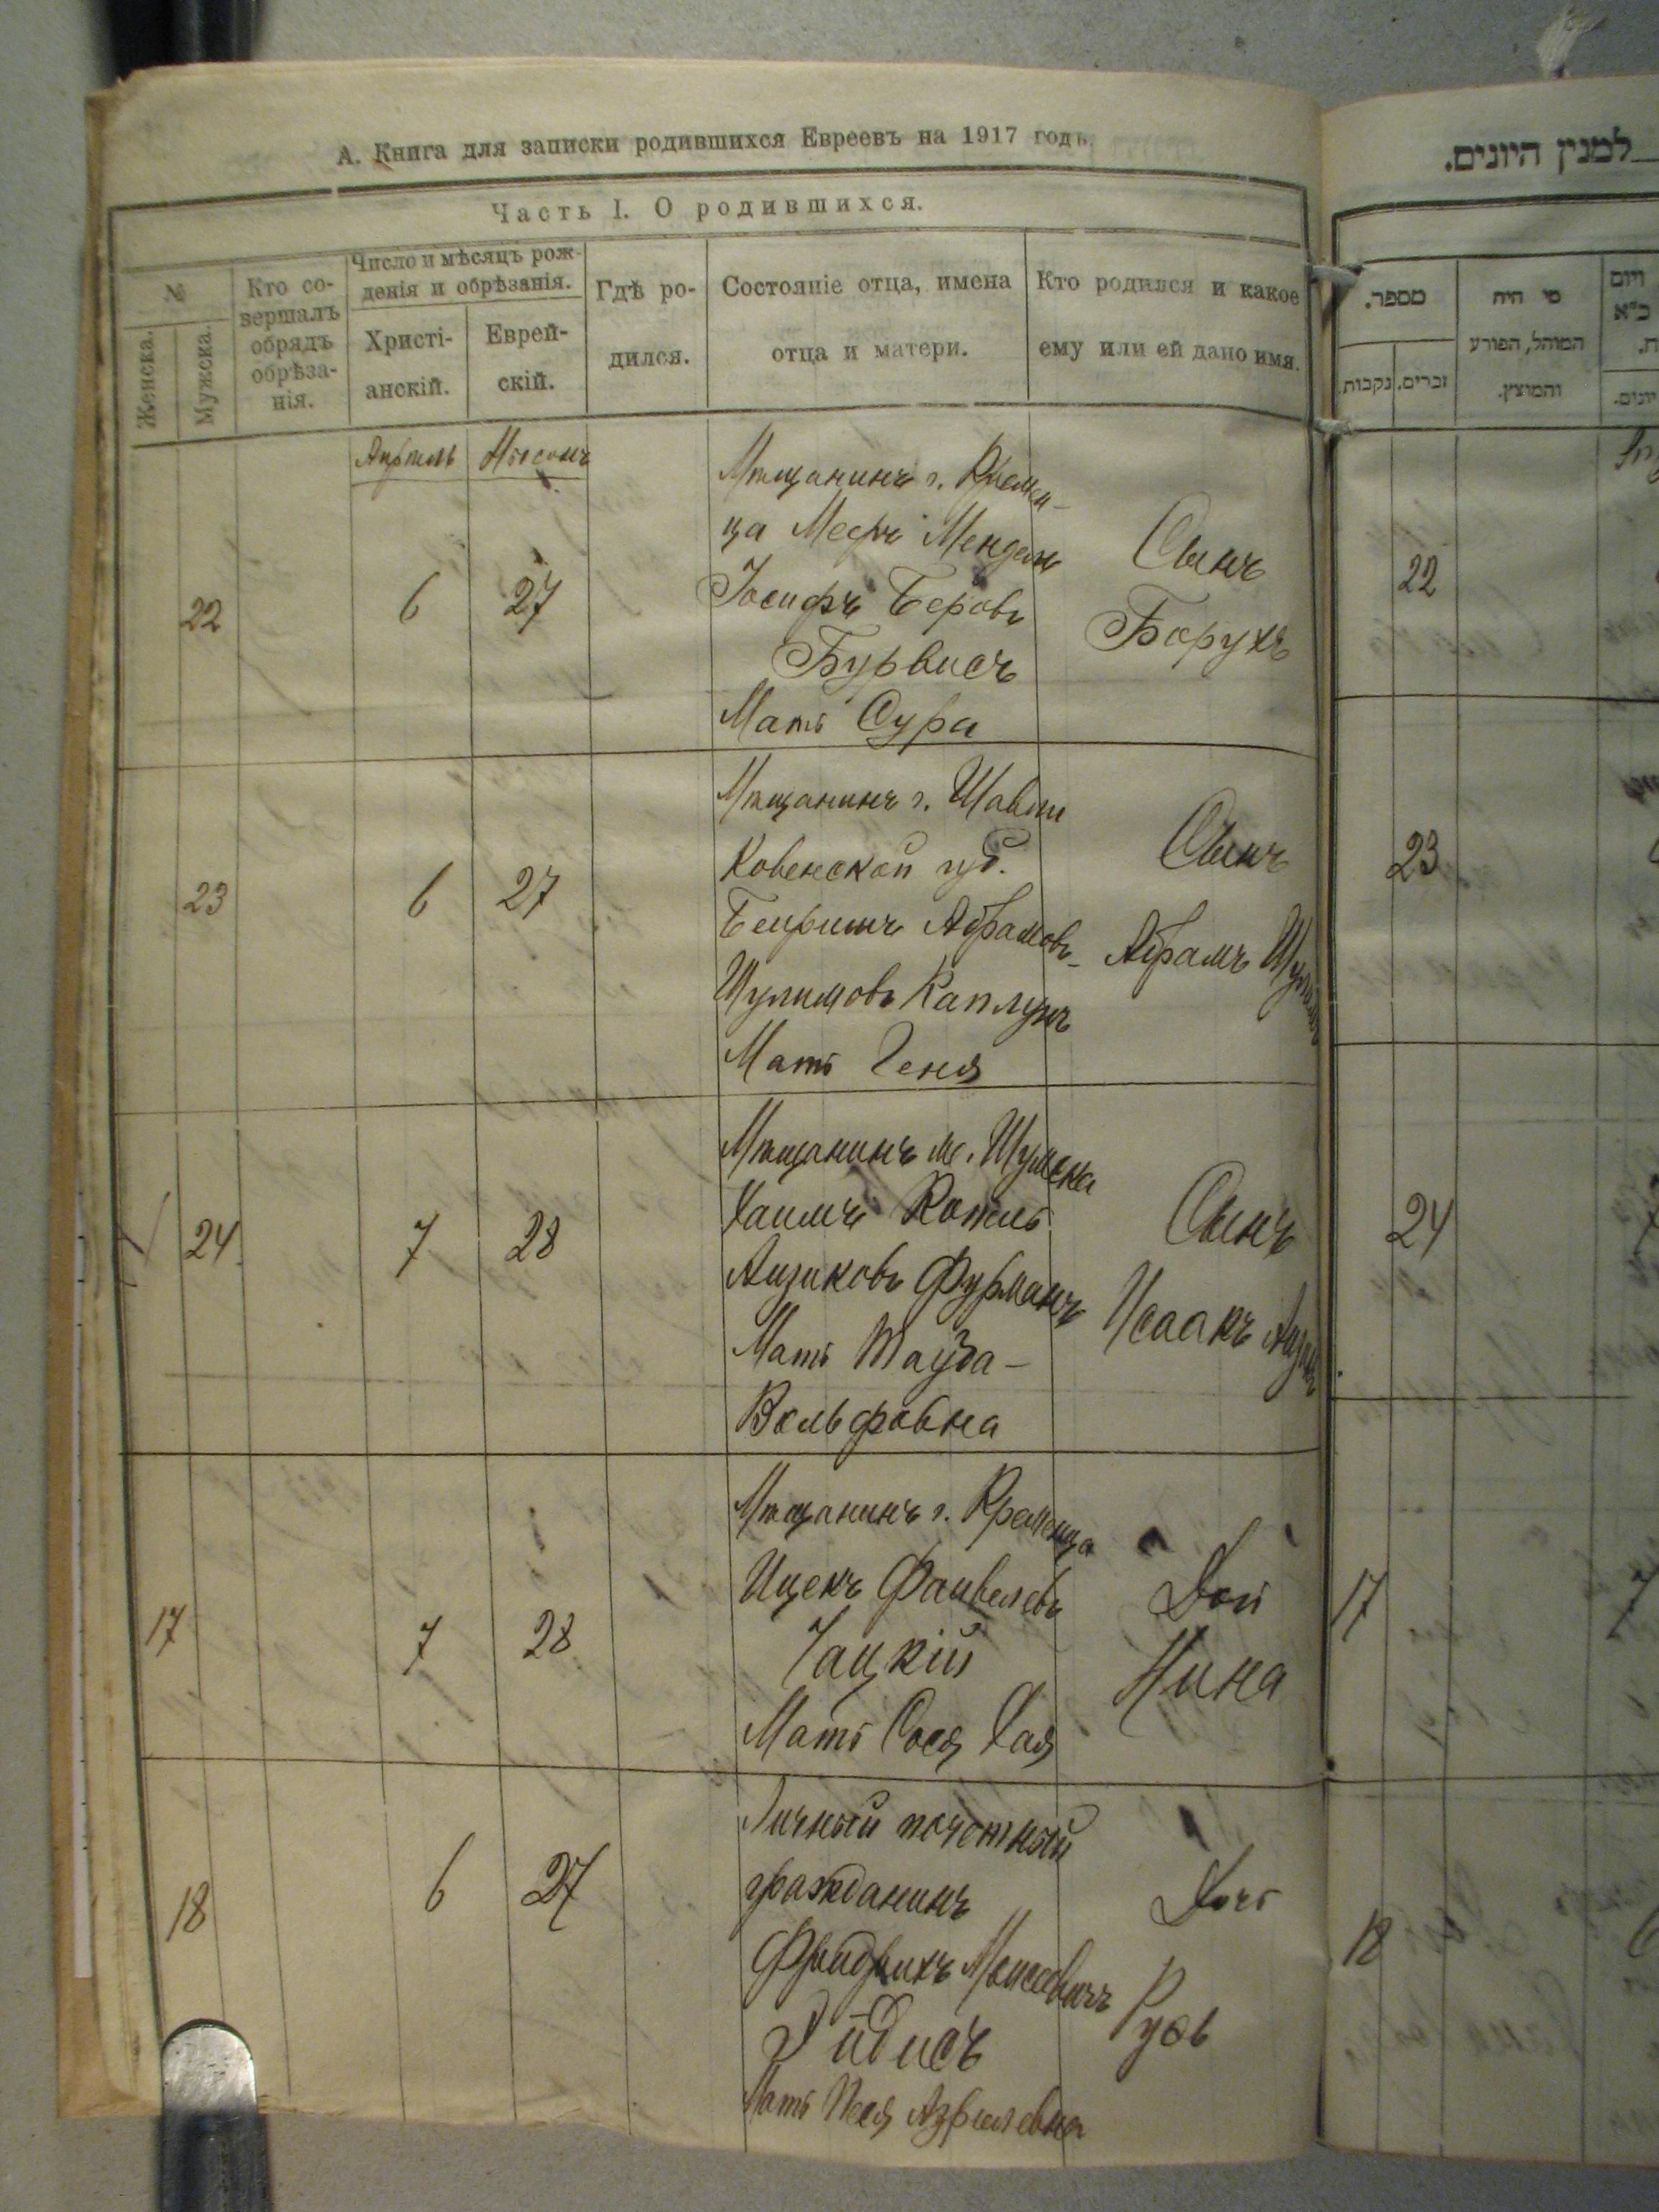 А. Книга для записки родившихся Евреевъ на 1917 годъ.
Часть I. О родившихся.
№
Женска.
Мужска.
Кто со-
вершалъ
обрядъ
обрѣза-
нія.
Число и мѣсяцъ рож-
денія и обрѣзанія.
Христі-
анскій.
Еврей-
скій.
Гдѣ ро-
дился.
Состояніе отца, имена
отца и матери.
Кто родился и какое
ему или ей дано имя.
Апрѣль Нисонъ
22 6 27
Мѣщанинъ г. Кремен-
ца Мееръ Мендель
Іосифъ Беровъ
Бурвисъ
Мать Сура
Сынъ
Борухъ
23 6 27
Мѣщанинъ г. Шавли
Ковенской губ.
Абрамовъ-
Шулимовъ Каплунъ
Мать Геня
Сынъ
Абрамъ
24 7 28
Мѣщанинъ м. Шумска
Хаимъ Котель
Аизиковъ Фурманъ
Мать Тауба-
Вольфовна
Сынъ
Исаакъ
17 7 28
Мѣщанинъ г. Кременца
Ицекъ Файвелевъ
Чацкій
Мать Сося Хая
Дочь
Нина
18 6 27
Личный почетный
гражданинъ
Фридрихъ Моисеевичъ
Мать Песя Азриелевна
Дочь
Руфь
למנין היונים.
מספר.
זכרים.
נקבות.
מי היה
המוהל, הפורע
והמוצץ.
22
23
24
17
18